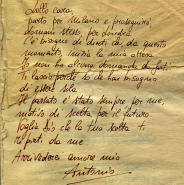 Bella cara,
parto per Milano e proseguirò
domani stesso per
C'è bisogno di dirti che da questo
momento inizia la mia attesa
Io non ho alcuna domanda da farti.
Ti lascio perché tu che hai bisogno
di essere sola
Il passato è stato sempre per me,
motivo di scelta per il futuro
Voglio che la tua scelta ti
porti da me
Arrivederci amore mio
Antonio